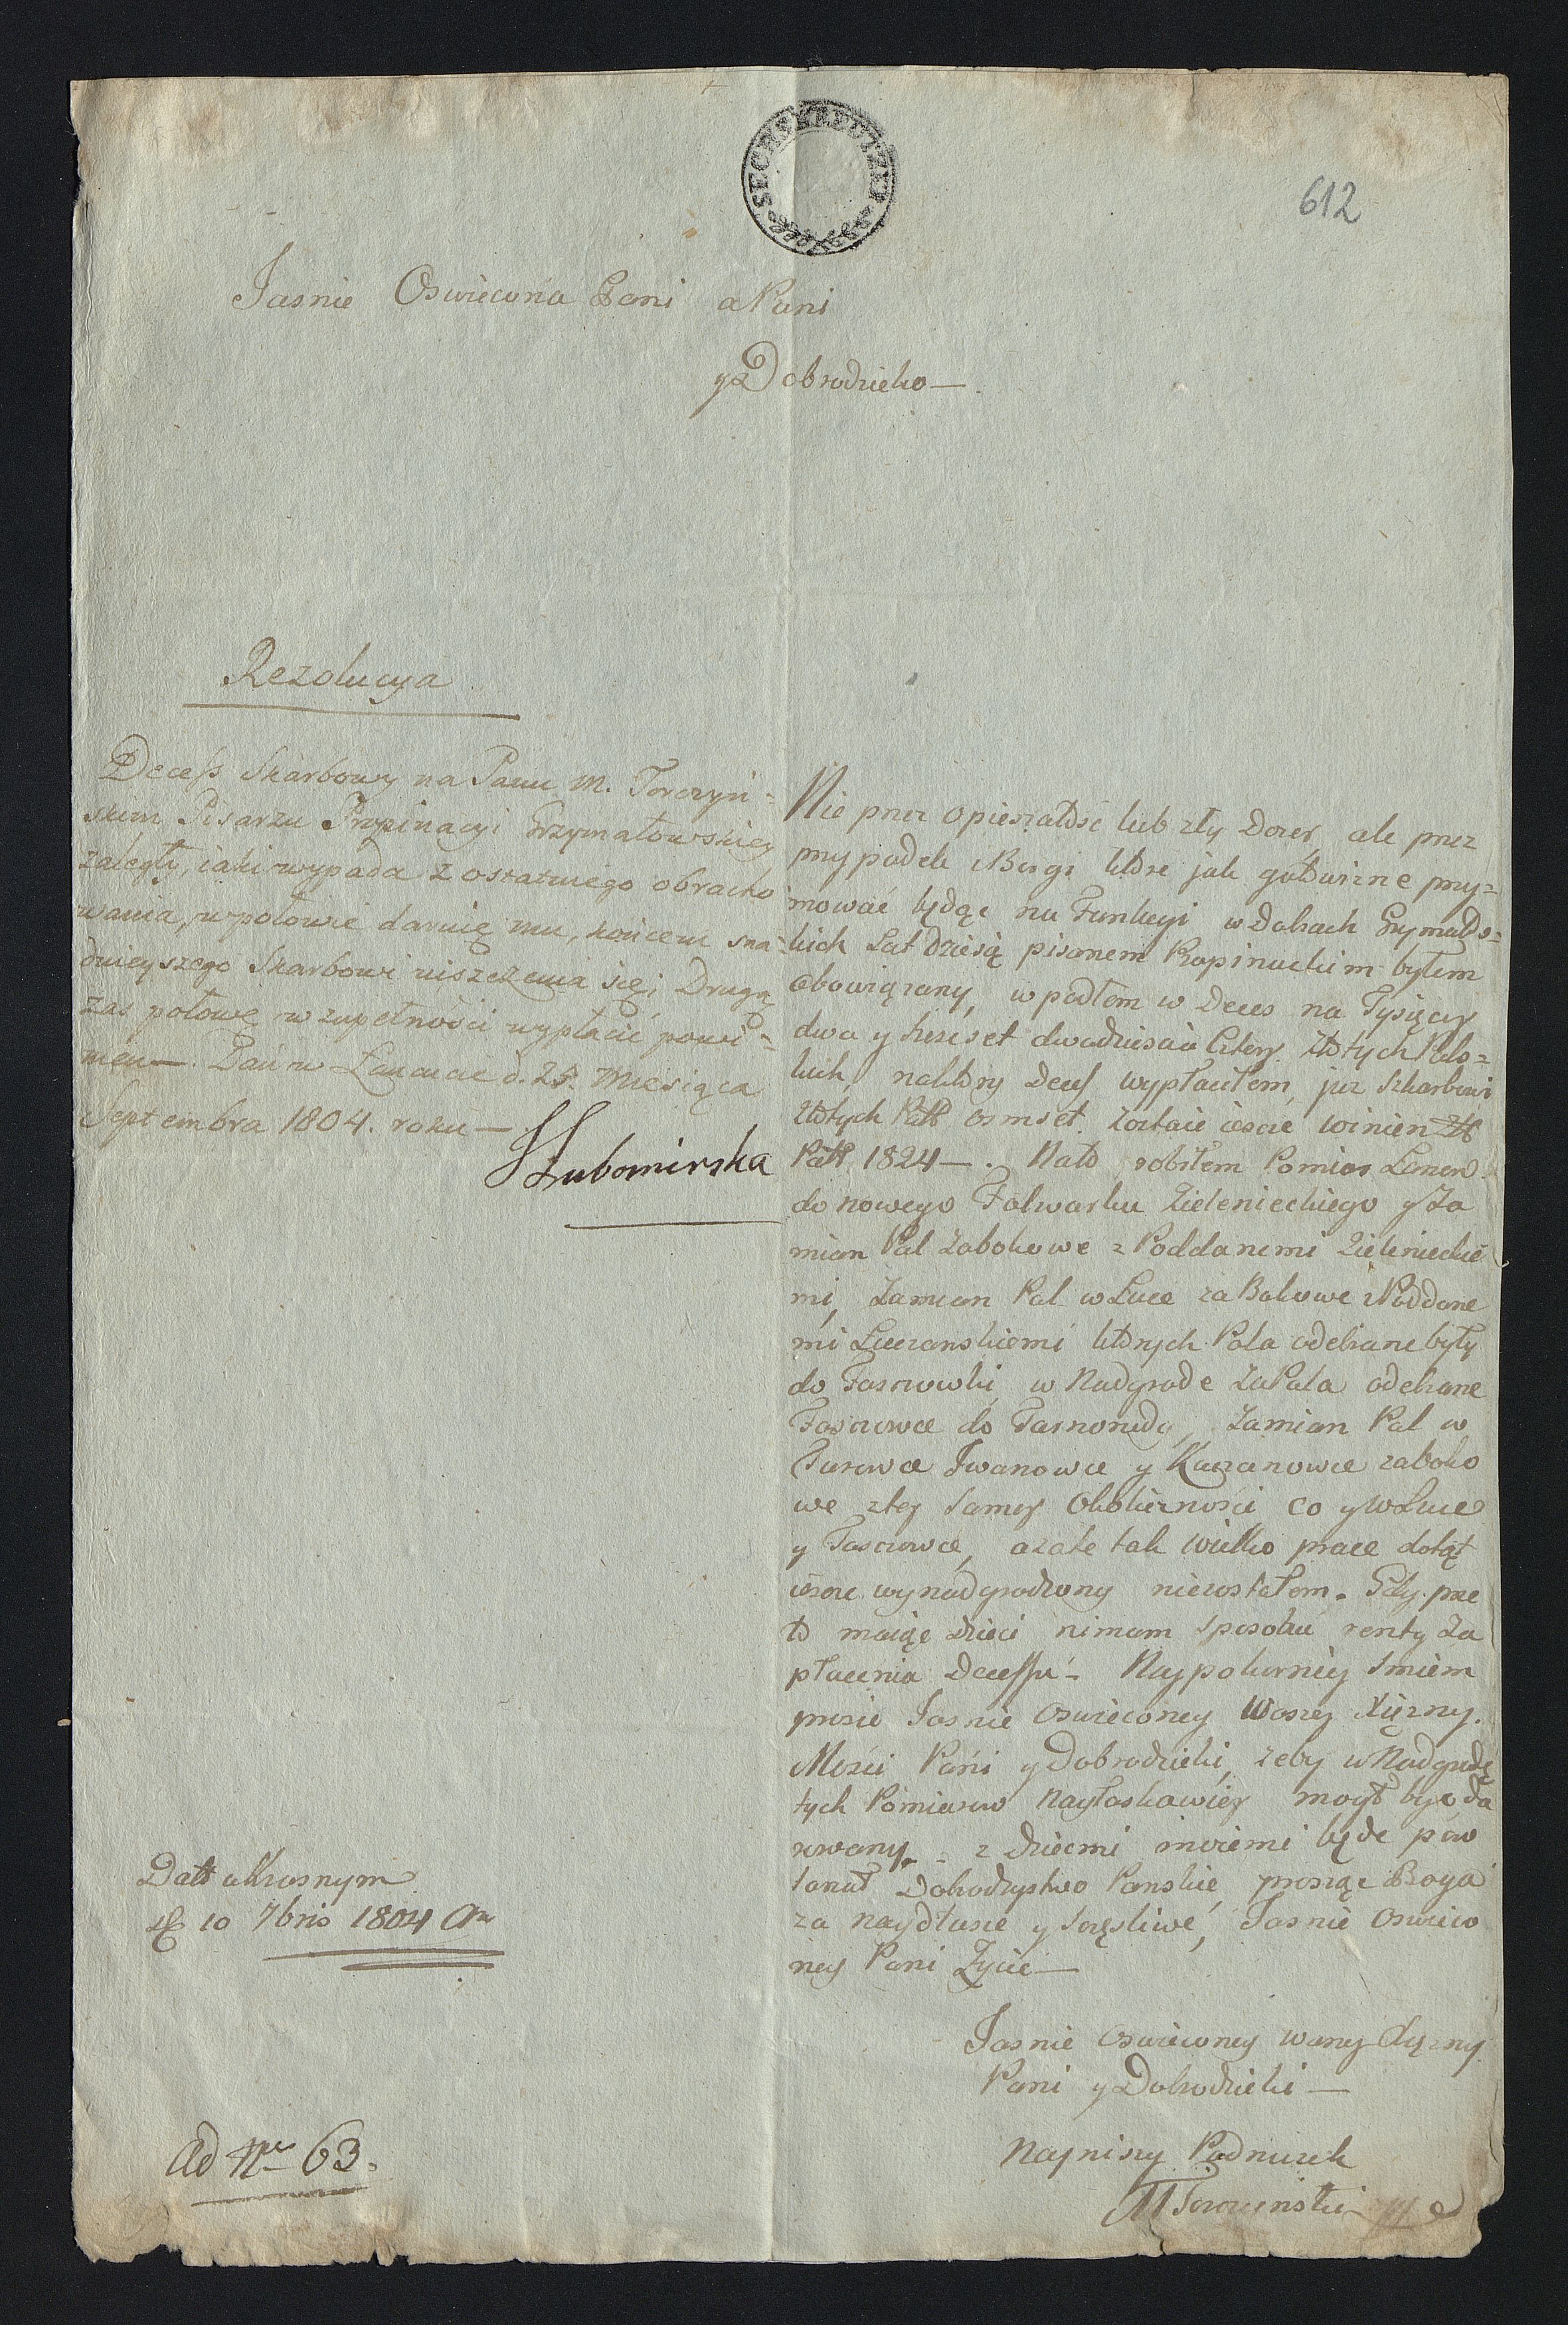 SECHS KREUTZER
612
Jasnie Oswiecona Pani a Pani
y Dobrodzieko —
Rezolucya
Decess Skarbowy na Panu M. Toroczyń=
skim Pisarzu Propinacyi Grzymałowskiey
zaległy, iaki wypada z ostatniego obracho
wania, w połowie daruię mu, końcem sna=
dnieyszego Skarbowi uiszczenia się; Drugą
zas połowę w zupełności wypłacić powi=
nien —. Dan w Łancucie d. 25. Miesiąca
Septembra 1804. roku —
Lubomirska
Nie przez opieszałość lub zły Dozer, ale przez
przypadek Burgi które jak gotowizne przy=
mować będąc na Funkcyi w Dobrach Grymało=
kich Lat dziesią pisarzem Propinackim byłem
obowiązany, wpadłem w Deces na Tysięcy
dwa y sześćset dwadziescia Cztery Złotych Pols=
kich, naktóry Decess wypłaciłem już Szkarbowi
Złotych Polk osmset. Zostaie iescze winien Zł
Polk 1824 —. Nato robiłem Pomiar Lanow
do nowego Folwarku Zieleniechiego y Za
mian Pol zabokowe z Poddanemi Zielenieckie
mi, Zamian Pol w Luce za Bokowe z Poddane
mi Luczanskiemi których Pola odebrane były
do Fascrowki, w Nadgrode za Pola odebrane
do Tarnorudy, Zamian Pol w
Turowce Iwanowce y Kaczanowce zaboko
we ztey samey Okoliczności co y w Luce
y, azate tak wielko prace dotąt
iescze wynadgrodzony niezostałem. Gdy prze
to maiąc dzieci nimam sposobu reszty Za
płacenia Decessu — Naypokorniey smiem
prosic Jasnie Oswieconey Waszey Xiężny
Mości Pani y Dobrodzieki, zeby w Nadgrodę
tych Pomiarow naylaskawiey mogł byc da
rowany — z dziecmi moiemi będe pow
tarzał Dobrodzystwo Panskie, prosząc Boga
za naydłusze y sczęsliwe, Jasnie Oswieco
ney Pani Zycie —
Jasnie Oswieconey Waszey Xiężny
Pani y Dobrodzieki —
Nayniszy Podnuzek
M Toroczinski
Datt w Krasnym
d. 10 7bris 1804 An
Ad Nrum 63.